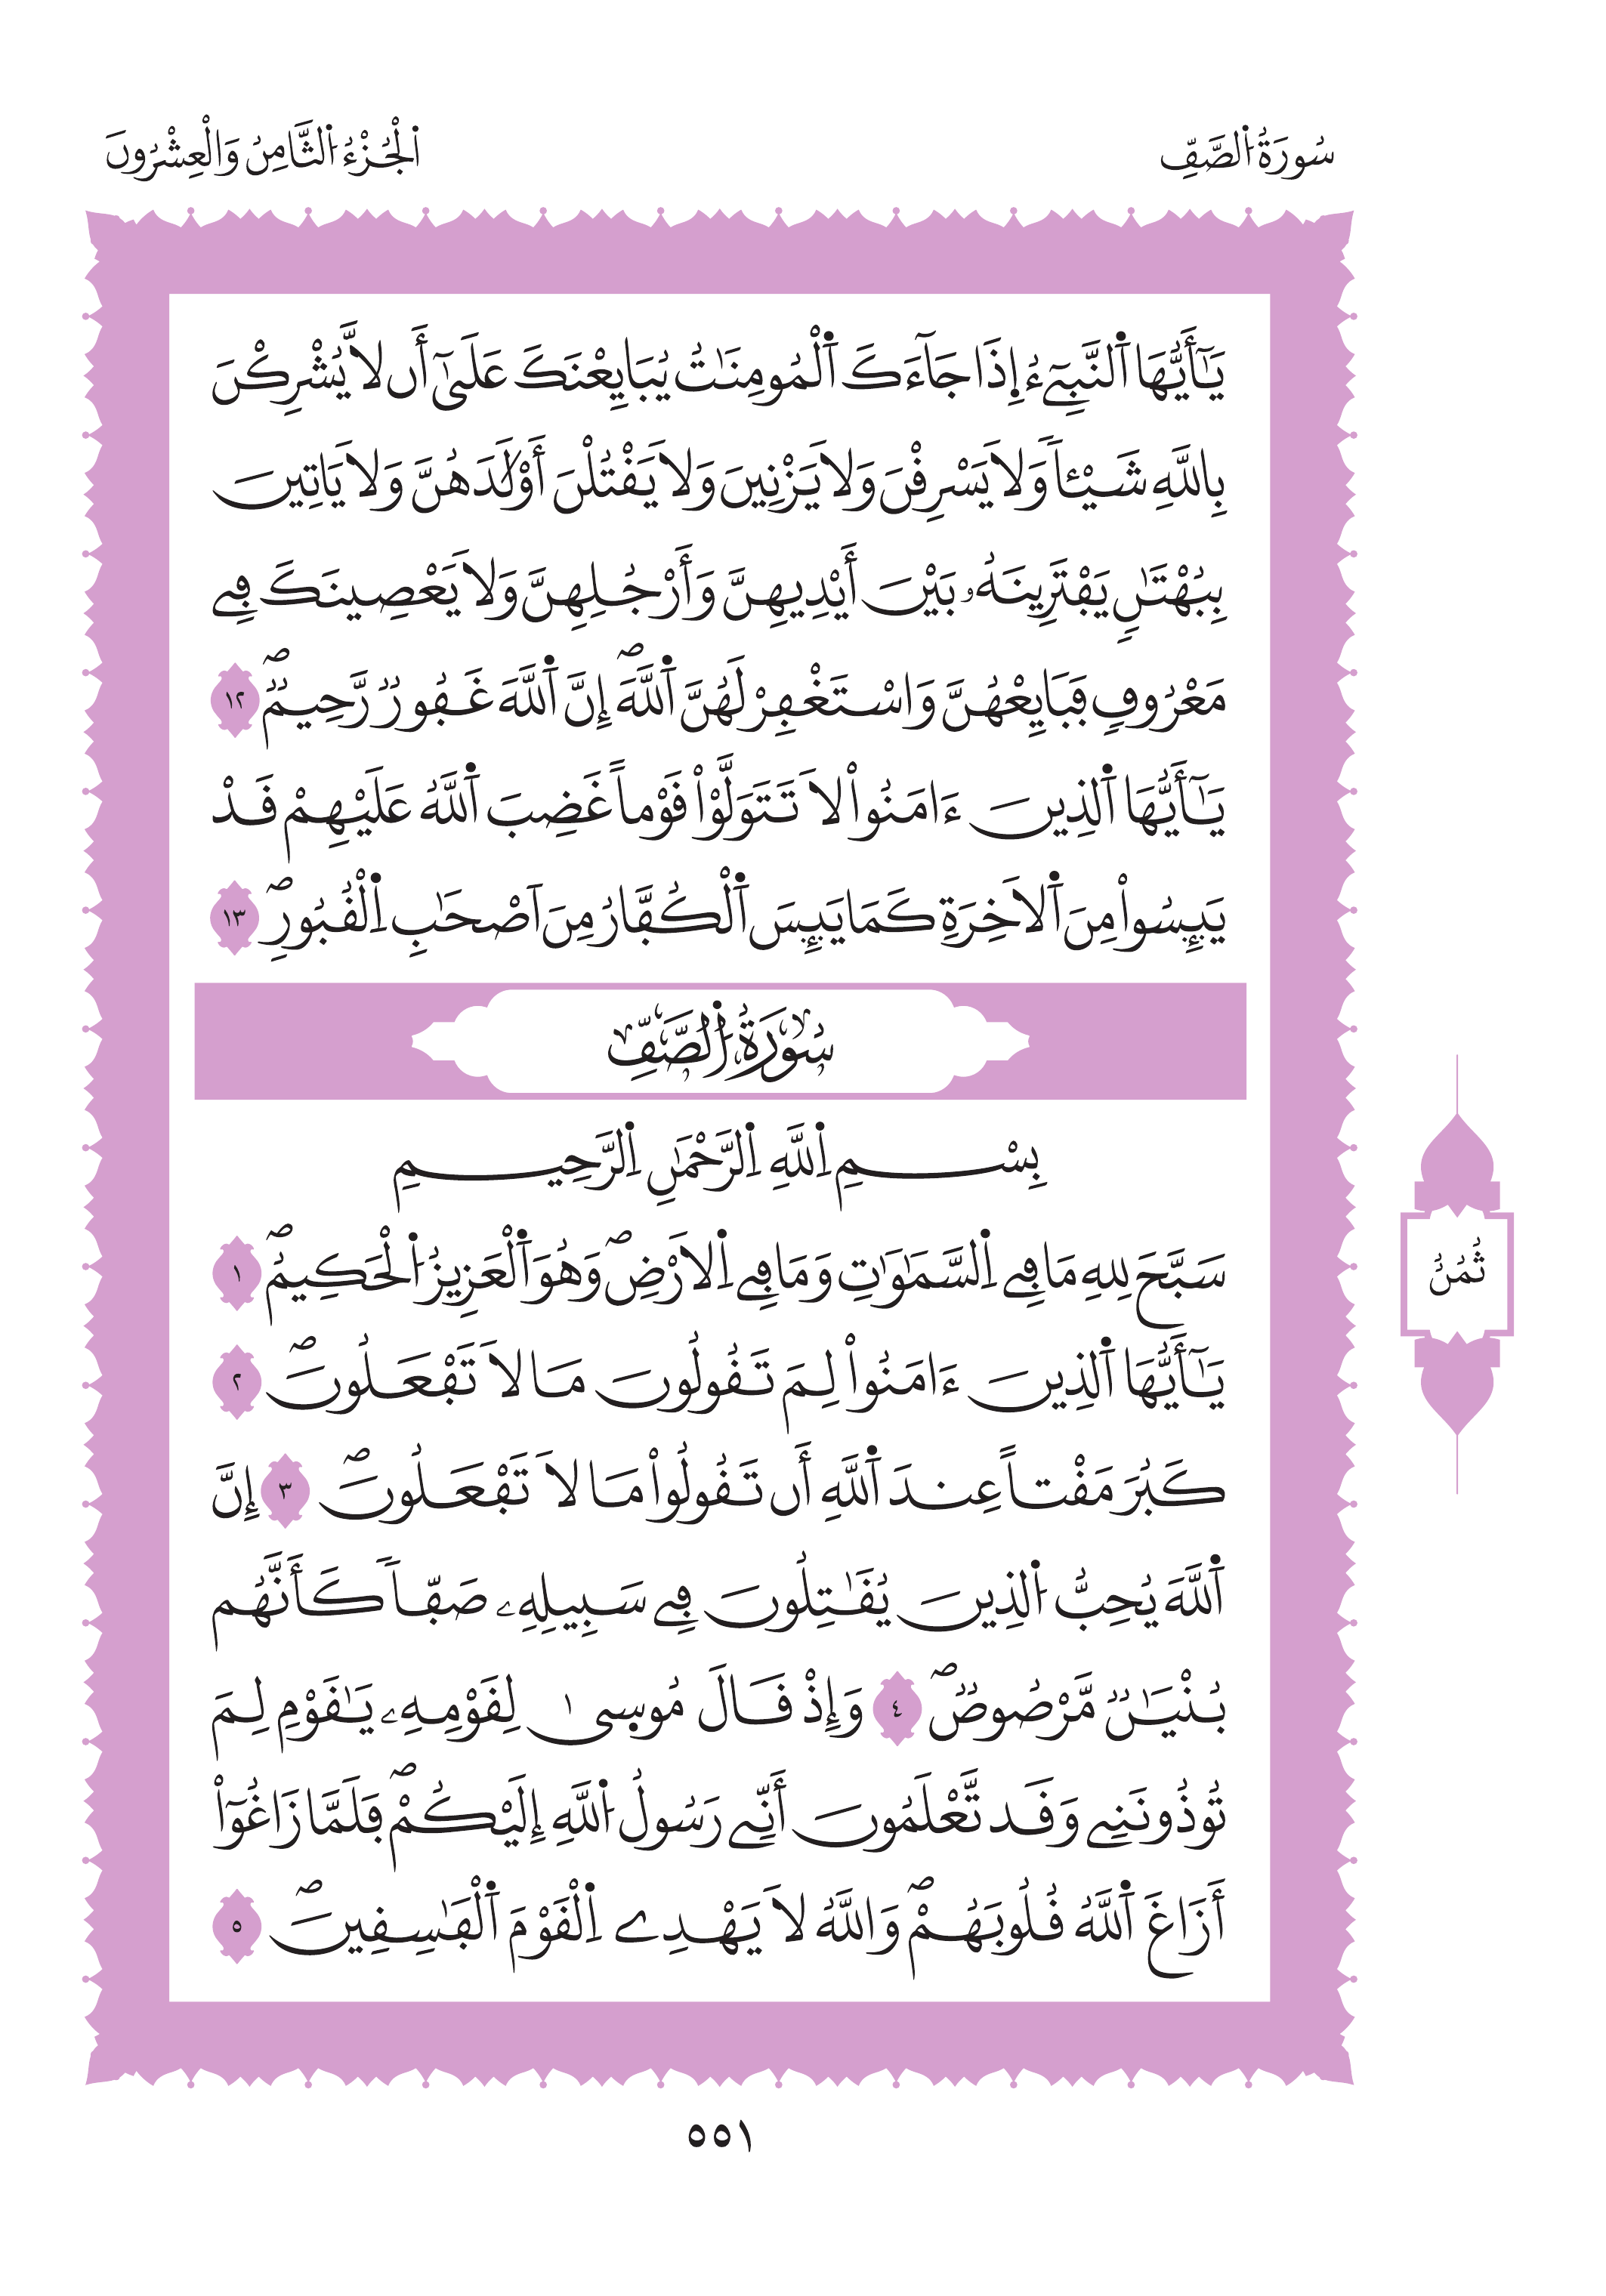 سُورَةُ اُ۬لصَّفِّ
اَ۬لْجُزْءُ اُ۬لثَّامِنُ وَالْعِشْرُونَ
يَٰٓأَيُّهَا اَ۬لنَّبِےٓءُ اِ۪ذَا جَآءَكَ اَ۬لْمُومِنَٰتُ يُبَايِعْنَكَ عَلَىٰٓ أَن لَّا يُشْرِكْنَ
بِاللَّهِ شَيْـٔاٗ وَلَا يَسْرِقْنَ وَلَا يَزْنِينَ وَلَا يَقْتُلْنَ أَوْلَٰدَهُنَّ وَلَا يَاتِينَ
بِبُهْتَٰنٖ يَفْتَرِينَهُۥ بَيْنَ أَيْدِيهِنَّ وَأَرْجُلِهِنَّ وَلَا يَعْصِينَكَ فِے
مَعْرُوفٖ فَبَايِعْهُنَّ وَاسْتَغْفِرْ لَهُنَّ اَ۬للَّهَۖ إِنَّ اَ۬للَّهَ غَفُورٞ رَّحِيمٞۖ ١٢
يَٰٓأَيُّهَا اَ۬لذِينَ ءَامَنُواْ لَا تَتَوَلَّوْاْ قَوْماً غَضِبَ اَ۬للَّهُ عَلَيْهِمْ قَدْ
يَئِسُواْ مِنَ اَ۬لَاخِرَةِ كَمَا يَئِسَ اَ۬لْكُفَّارُ مِنَ اَصْحَٰبِ اِ۬لْقُبُورِۖ ١٣
سُورَةُ اُ۬لصَّفِّ
بِسْمِ اِ۬للَّهِ اِ۬لرَّحْمَٰنِ اِ۬لرَّحِيمِ
سَبَّحَ لِلهِ مَا فِے اِ۬لسَّمَٰوَٰتِ وَمَا فِے اِ۬لَارْضِۖ وَهُوَ اَ۬لْعَزِيزُ اُ۬لْحَكِيمُۖ ١
يَٰٓأَيُّهَا اَ۬لذِينَ ءَامَنُواْ لِمَ تَقُولُونَ مَا لَا تَفْعَلُونَۖ ٢
كَبُرَ مَقْتاً عِندَ اَ۬للَّهِ أَن تَقُولُواْ مَا لَا تَفْعَلُونَۖ ٣ إِنَّ
اَ۬للَّهَ يُحِبُّ اُ۬لذِينَ يُقَٰتِلُونَ فِے سَبِيلِهِۦ صَفّاٗ كَأَنَّهُم
بُنْيَٰنٞ مَّرْصُوصٞۖ ٤ وَإِذْ قَالَ مُوسۭيٰ لِقَوْمِهِۦ يَٰقَوْمِ لِمَ
تُوذُونَنِے وَقَد تَّعْلَمُونَ أَنِّے رَسُولُ اُ۬للَّهِ إِلَيْكُمْۖ فَلَمَّا زَاغُوٓاْ
أَزَاغَ اَ۬للَّهُ قُلُوبَهُمْۖ وَاللَّهُ لَا يَهْدِے اِ۬لْقَوْمَ اَ۬لْفَٰسِقِينَۖ ٥
ثُمُنُ
٥٥١